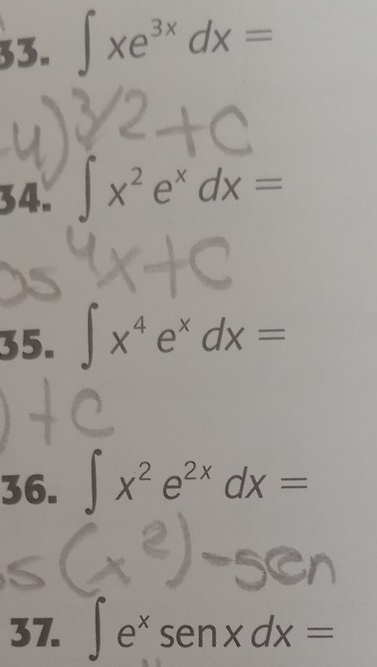 33. ∫ xe³ˣ dx =
-4)^3/2 + C
34. ∫ x² eˣ dx =
os⁴x + C
35. ∫ x⁴ eˣ dx =
) + C
36. ∫ x² e²ˣ dx =
os(x²) - sen
37. ∫ eˣ sen x dx =